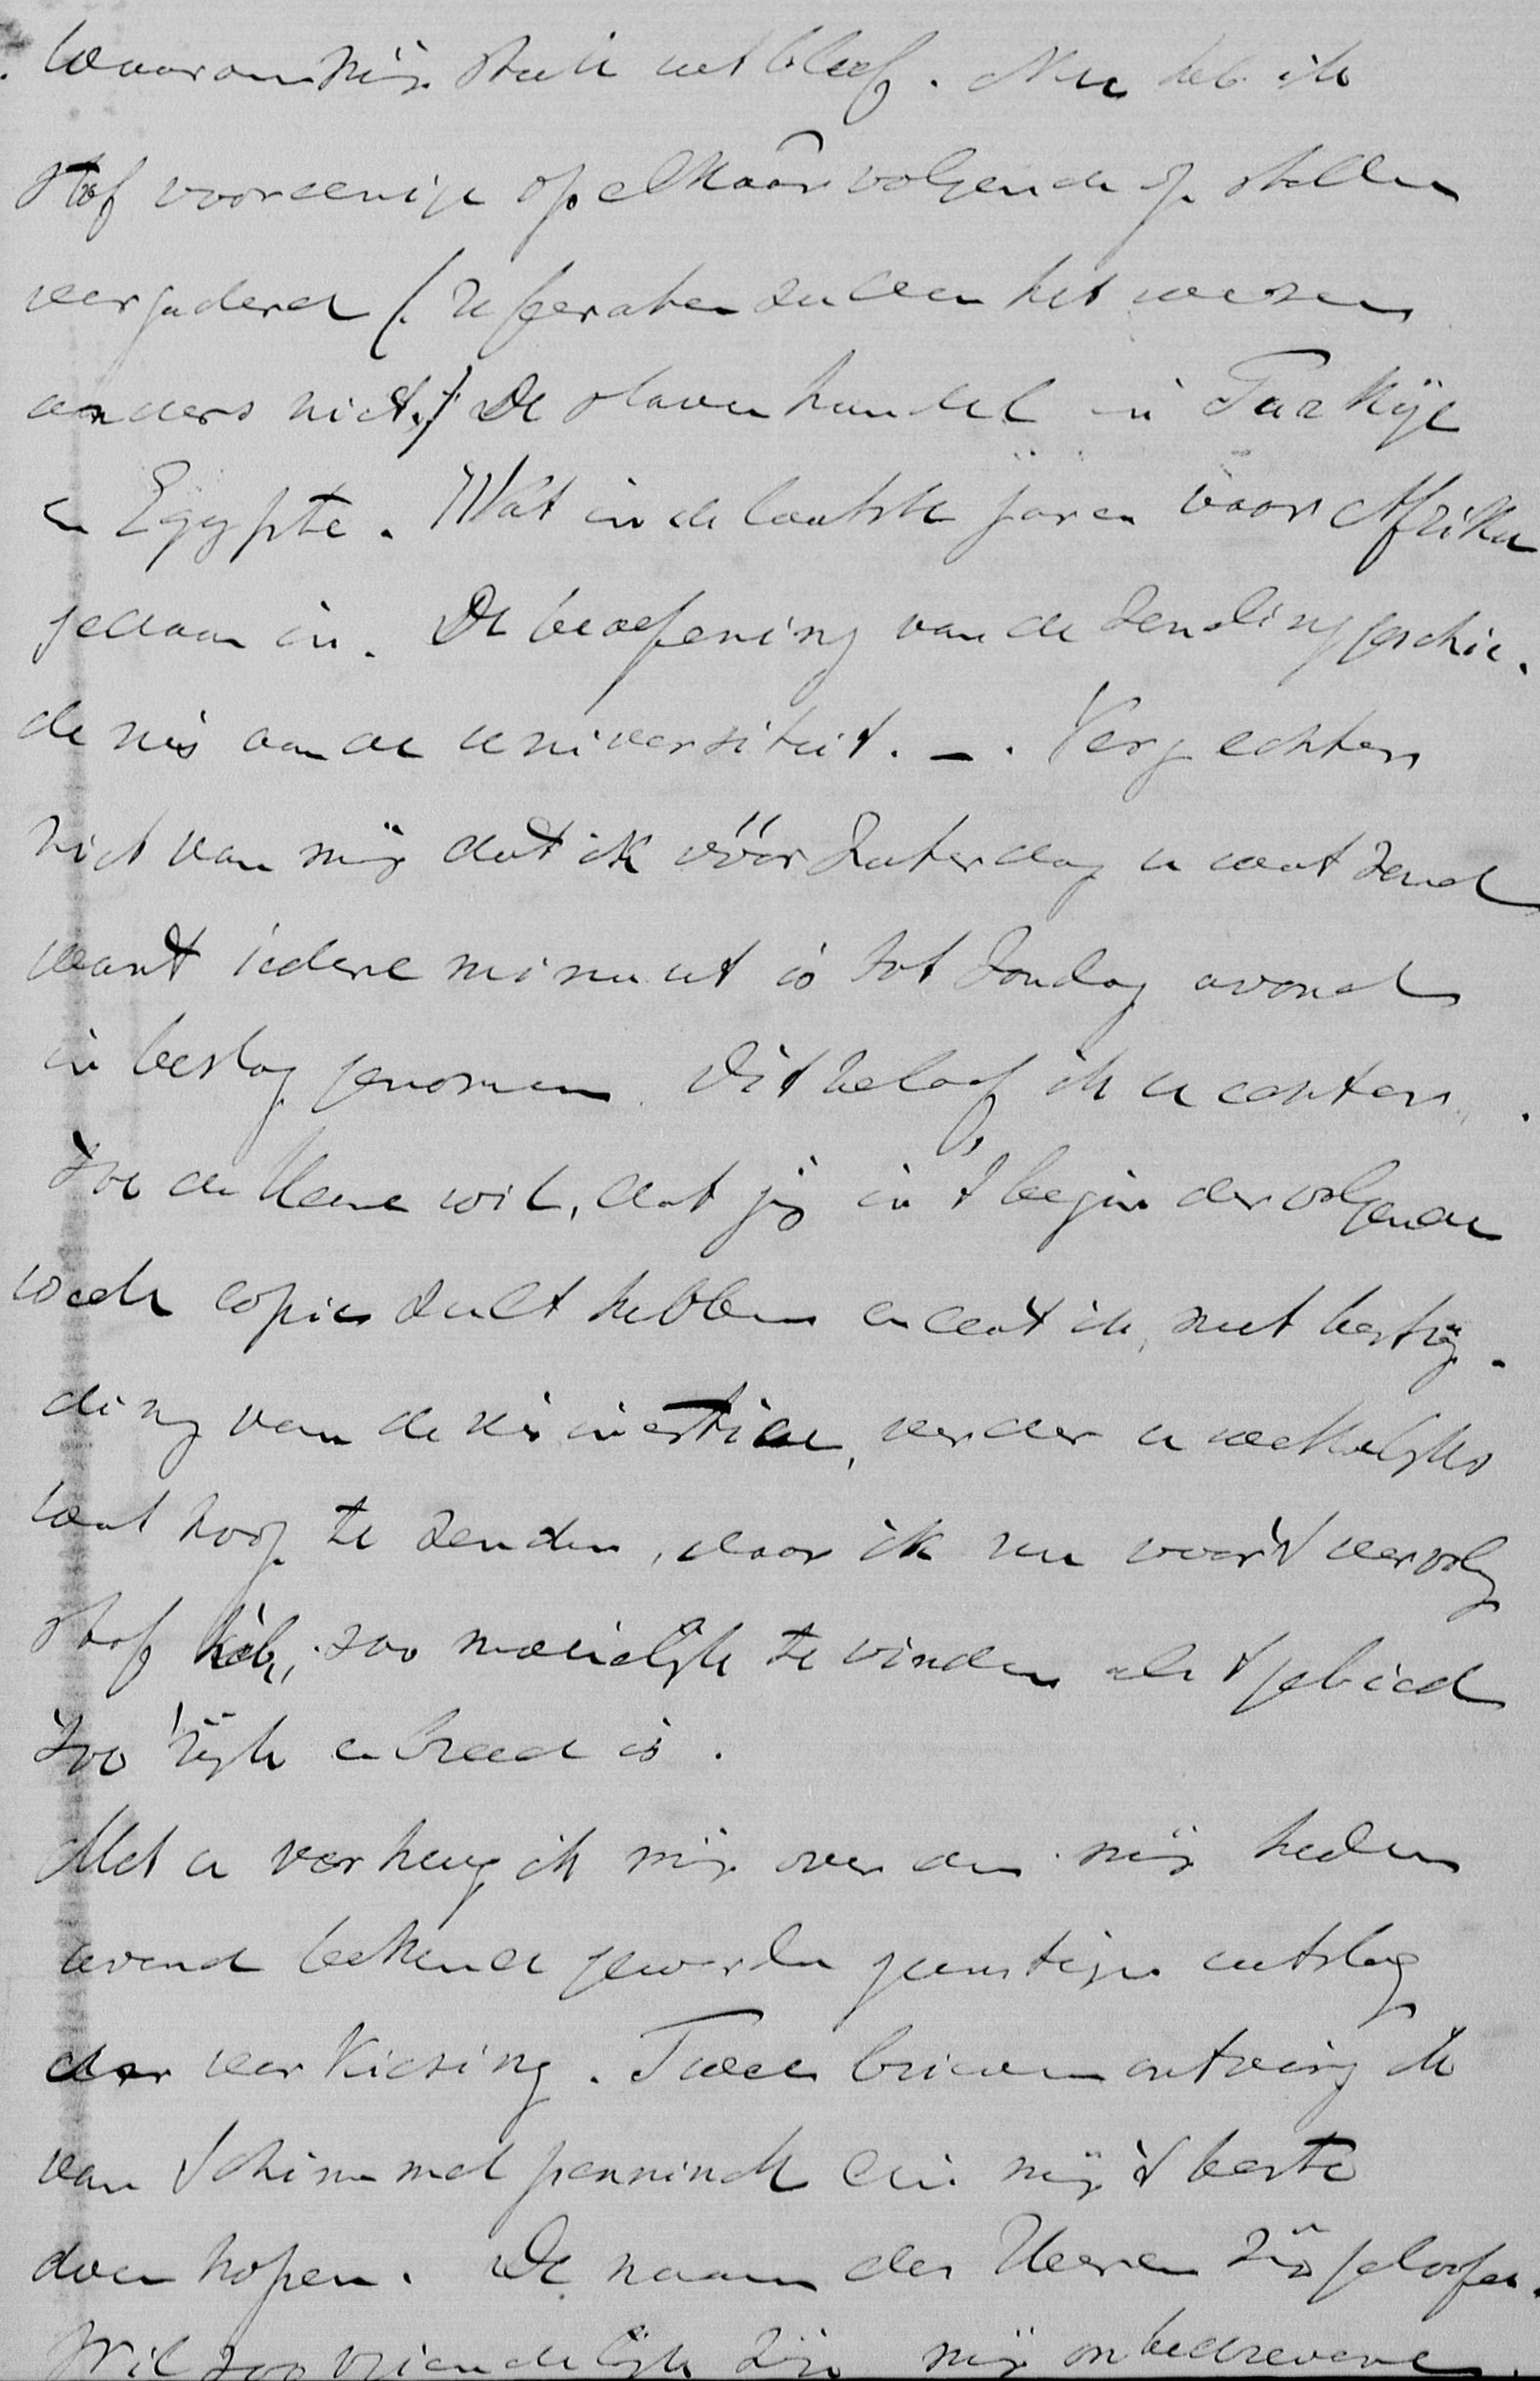 Waarom mijn stuk uitbleef. Nu heb ik
stof voor eenige op elkaar volgende opstellen
vergaderd (referaten zullen het wezen
anders niet.) De slavenhandel in Turkije
en Egypte. Wat in de laatste jaren voor Afrika
gedaan is. De beoefening van de zendingsgeschie-
denis aan de universiteit. —. Verg echter
niet van mij dat ik vóór Zaterdag u wat zend
want iedere minuut is tot Zondag avond
in beslag genomen. Dit beloof ik u echter,
zoo de Heere wil, dat gij in 't begin der volgende
week copie zult hebben en dat ik, met bestrij-
ding van de vis inertiae, verder u wekelijks
wat hoop te zenden, daar ik nu voor 't vervolg
stof heb, zoo moeielijk te vinden als 't gebied
zoo rijk en breed is.
Met u verheug ik mij over den mij heden
avond bekend geworden gunstigen uitslag
der verkiezing. Twee brieven ontving ik
van Schimmelpenninck die mij 't beste
doen hopen. De naam des Heeren zij geloofd.
Wil zoo vriendelijk zijn mij onbedrevene